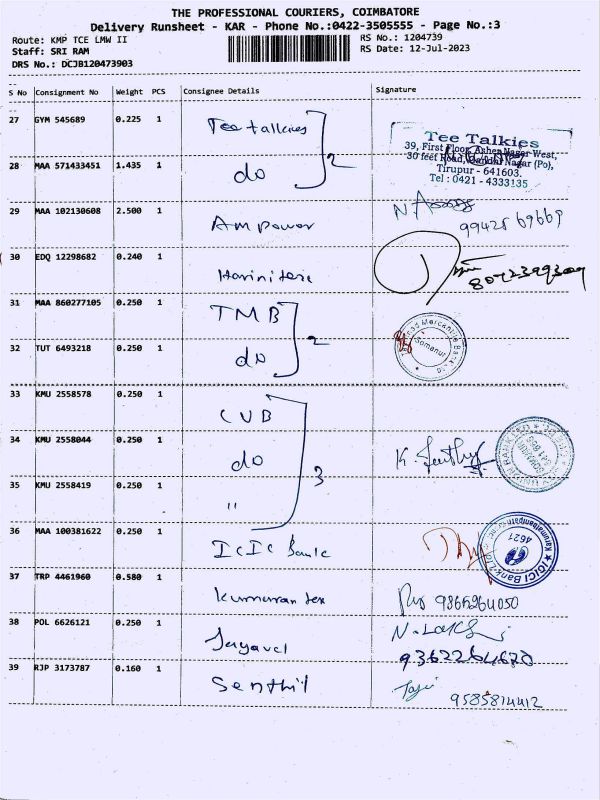 THE PROFESSIONAL COURIERS, COIMBATORE
Delivery Runsheet - KAR - Phone No.:0422-3505555 - Page No.:3
Route: KMP TCE LMW II
RS No.: 1204739
Staff: SRI RAM
RS Date: 12-Jul-2023
DRS No.: DCJB120473903
S No Consignment No Weight PCS Consignee Details Signature
27 GYM 545689 0.225 1 Tee talkies
28 MAA 571433451 1.435 1 do 2
Tee Talkies
39, First Floor, Ashen Nagar West,
30 feet Road, Gandhi Nagar (Po),
Tirupur - 641603.
Tel : 0421 - 4333135
29 MAA 102130608 2.500 1 Am power
30 EDQ 12298682 0.240 1
31 MAA 860277105 0.250 1 TMB
32 TUT 6493218 0.250 1 do 2
Mercantile Bank
Somanur
33 KMU 2558578 0.250 1 CUB
34 KMU 2558044 0.250 1 do
35 KMU 2558419 0.250 1 " 3
36 MAA 100381622 0.250 1 IcIc Bank
ICICI Bank
4621
37 TRP 4461960 0.580 1 Kumaran tex
38 POL 6626121 0.250 1 Jayavel N. Lakshmi
9362264670
39 RJP 3173787 0.160 1 Senthil
9585814412